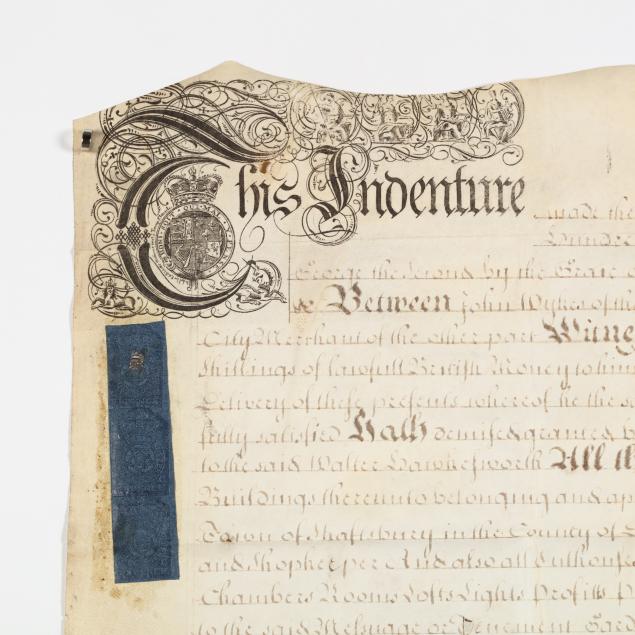 This Indenture made the
Hundre
George the Second by the Grace o
&c Between John Wykes of the
City Merchant of the other part Witne
Shillings of lawfull British Money to him
Delivery of these presents whereof he the s
fully satisfied Hath demised granted b
to the said Walter Hawkesworth All th
Buildings thereunto belonging and ap
Town of Shaftsbury in the County of
and Shopkeeper And also all Outhouses
Chambers Rooms Lofts Lights Profitts
to the said Messuage or Tenement Gard